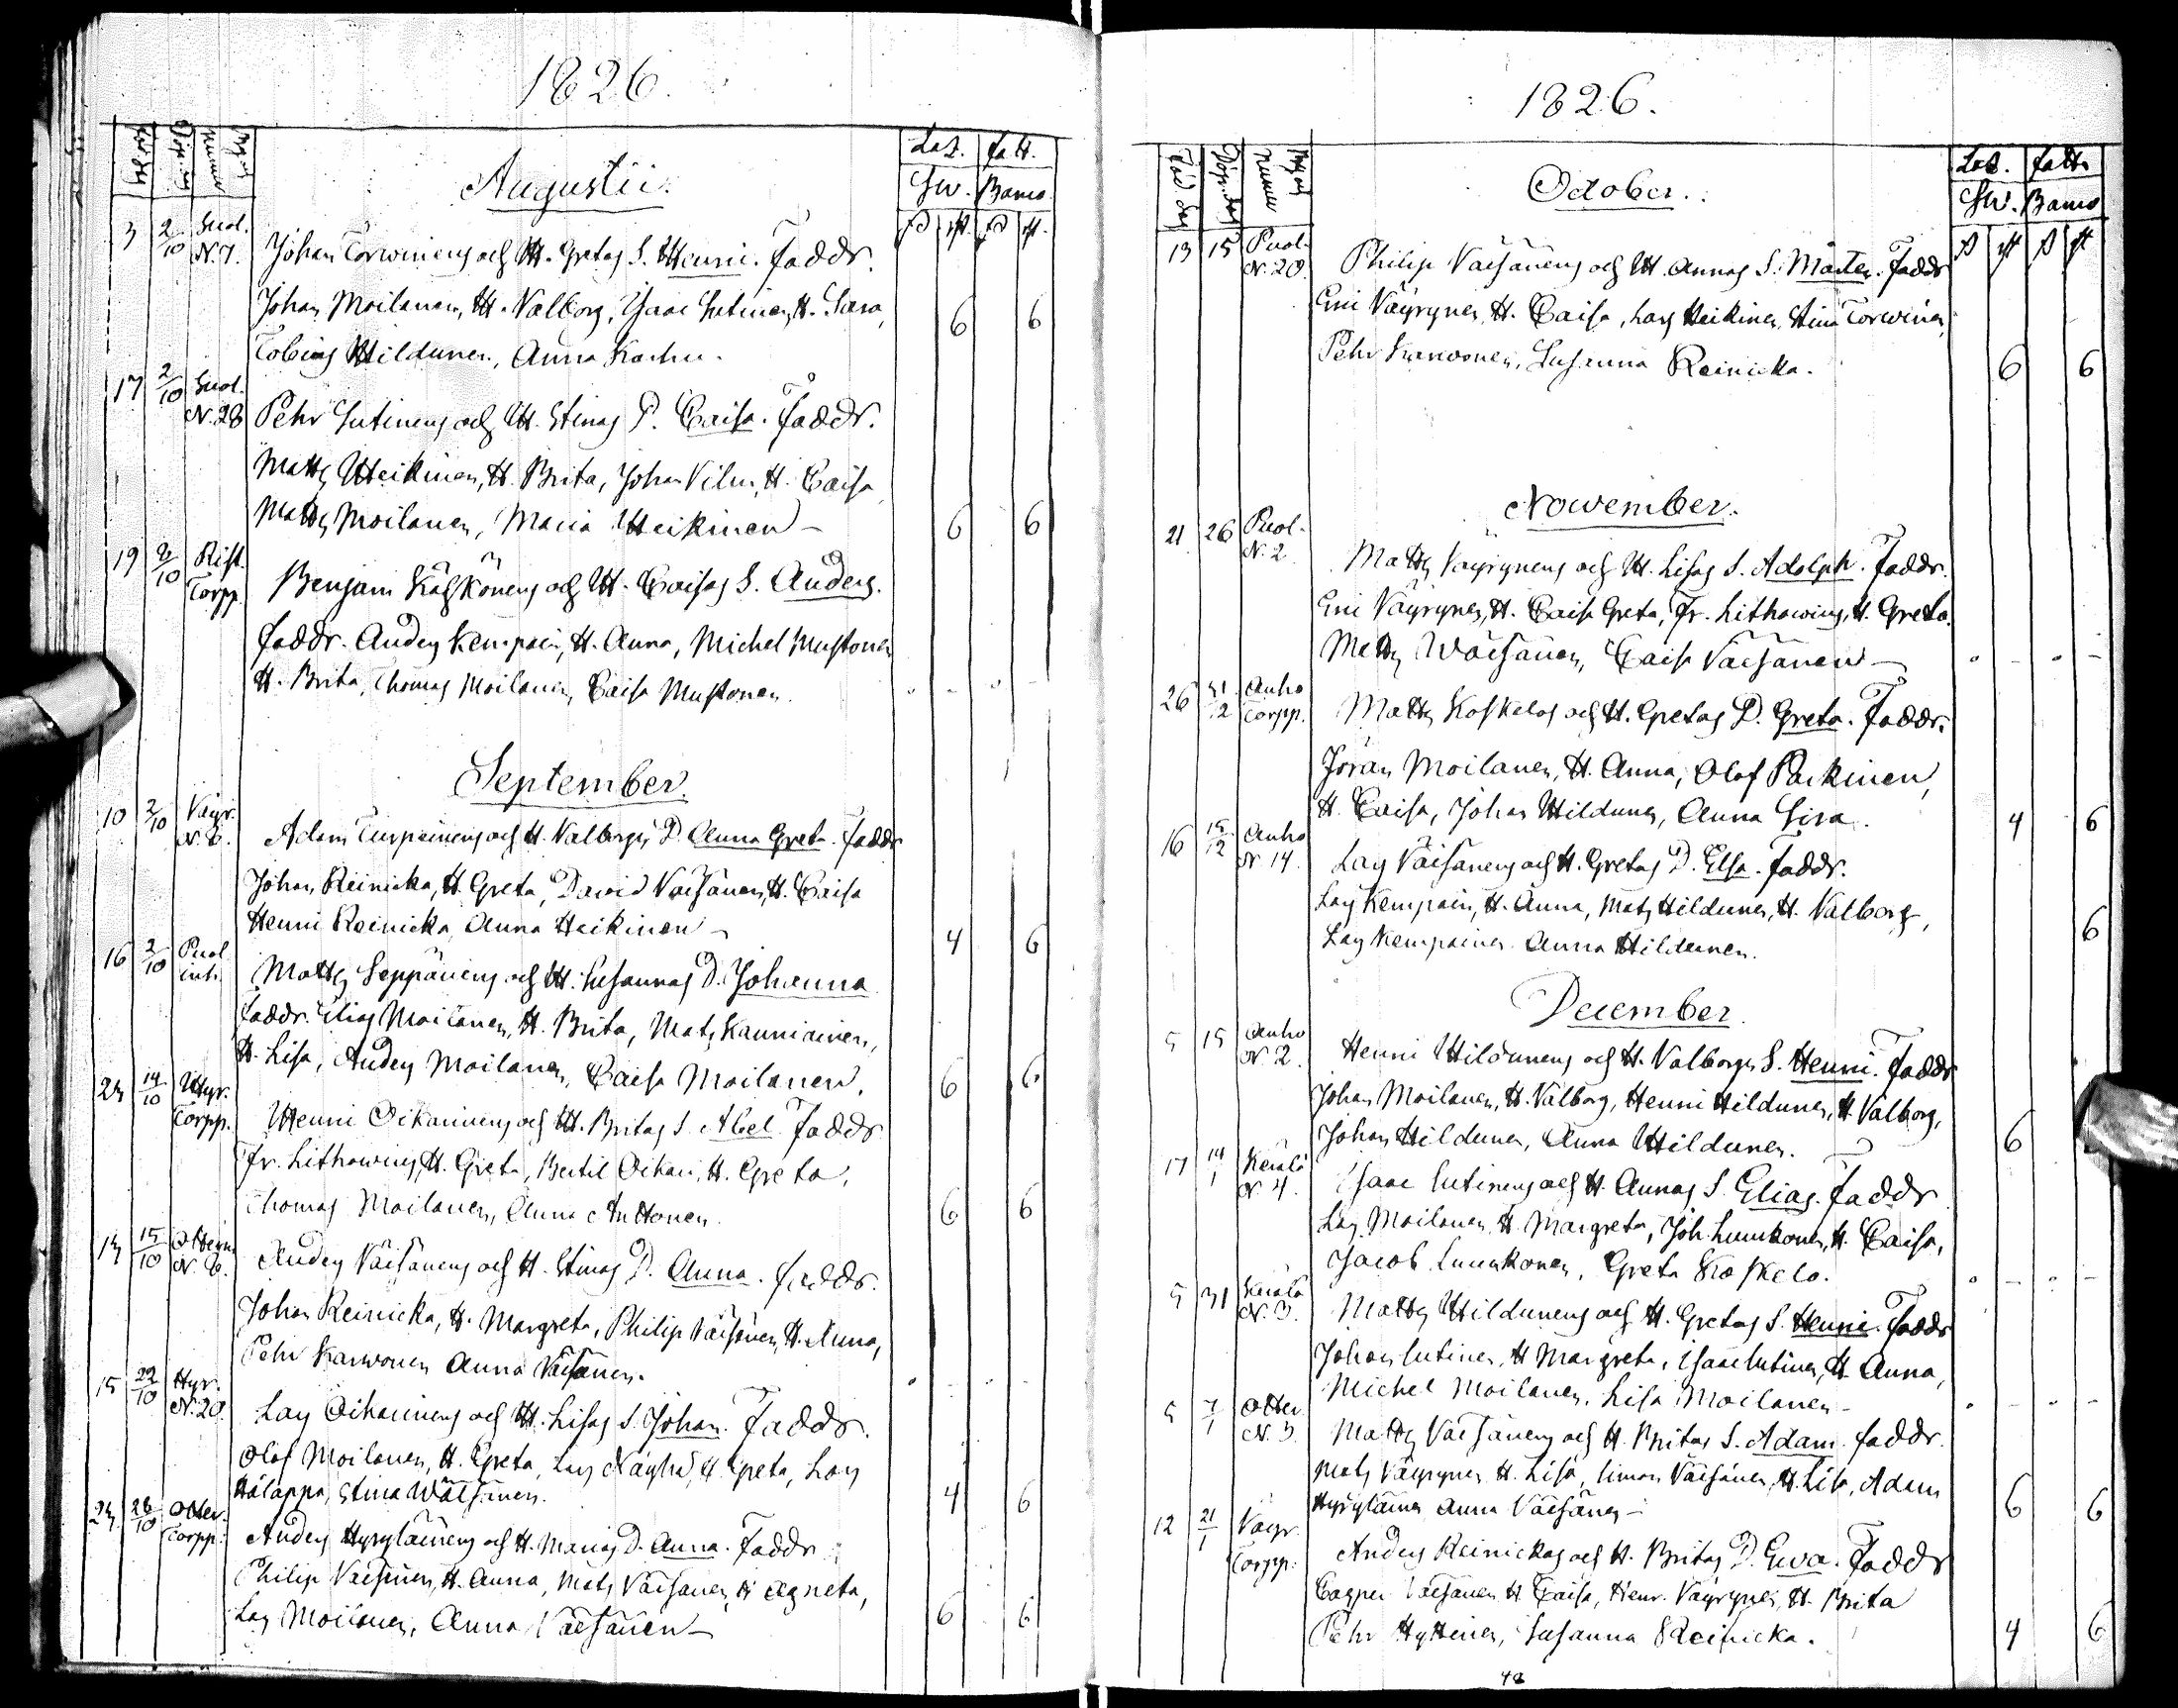 1826.
Augustii.
Las. fatt.
Sw. Banco
3 2/10 Suol. N. 7. Johan Torwinens och H. Gretas S. Henric. Faddr.
Johan Moilanen, H. Valborg, Isaac Lutinen, H. Sara, 6 6
Tobias Hildunen, Anna Karhu.
17 2/10 Suol. N. 28 Pehr Lutinens och H. Stinas D. Caisa. Faddr.
Matts Heikinen, H. Brita, Johan Vilmi, H. Caisa
Matts Moilanen, Maria Heikinen 6 6
19 2/10 Rist. Torpp. Benjam Käskönens och H. Caisas S. Anders.
faddr. Anders Kempain, H. Anna, Michel Mustonen
H. Brita, Thomas Moilanen, Caisa Mustonen.
September.
10 2/10 Väyr. N. 6. Adam Turpeinens och H. Valborgs D. Anna Greta. faddr
Johan Reinicka, H. Greta, David Väisänen, H. Caisa
Henric Reinicka, Anna Heikinen 4 6
16 2/10 Puol. inh. Matts Seppänens och H. Susannas D. Johanna
faddr. Elias Moilanen, H. Brita, Mats Kauniainen,
H. Lisa, Anders Moilanen, Caisa Moilanen. 6 6
23 14/10 Hyr. Torpp. Henric Oikarinens och H. Britas S. Abel. Faddr
Fr. Lithowius, H. Greta, Bertil Oikari, H. Greta,
Thomas Moilanen, Anna Anttonen. 6 6
13 15/10 Otterm. N. 6. Anders Väisänens och H. Stinas D. Anna. faddr.
Johan Reinicka, H. Margreta, Philip Väisänen, H. Anna,
Pehr Karwonen Anna Väisänen.
15 22/10 Hyr. N. 20. Lars Oikarinens och H. Lisas S. Johan. Faddr.
Olof Moilanen, H. Greta, Lars Näyhä, H. Greta, Lars
Hälappa, Stina Wäisänen. 4 6
23 28/10 Otter. Torpp. Anders Hyryläinens och H. Marias D. Anna. Faddr
Philip Väisänen, H. Anna, Mats Väisänen, H Agneta,
Lars Moilanen, Anna Väisänen 6 6
1826.
October.
Las. fatt.
Sw. Banco
13 15 Puol. N. 20. Philip Väisänens och H. Annas S. Mårten. Faddr
Eric Väyrynen, H. Caisa, Lars Heikinen, Stina Torwinen,
Pehr Karwonen, Susanna Reinicka. 6 6
Nowember.
21 26 Puol. N. 2 Matts Väyrynens och H. Lisas S. Adolph. Faddr.
Eric Väyrynen, H. Caisa Greta, Fr. Lithowius, H. Greta.
Matts Wäisänen, Caisa Väisänen
26 31/12 Auho Torpp. Matts Koskelos och H. Gretas D. Greta. Faddr.
Jöran Moilanen, H. Anna, Olof Parkinen,
H. Caisa, Johan Hildunen, Anna Sira. 4 6
16 15/12 Auho N 14. Lars Väisänens och H. Gretas D. Elsa. Faddr.
Lars Kempain, H. Anna, Mats Hildunen, H. Valborg,
Lars Kempainen Anna Hildunen. 6
December.
5 15 Auho N. 2. Henric Hildunens och H. Valborgs S. Henric. Faddr
Johan Moilanen, H. Valborg, Henric Hildunen, H. Valborg,
Johan Hildunen, Anna Hildunen. 6
17 14/1 Kerälä N 4. Isaac Lutinens och H. Annas S. Elias. Faddr
Lars Moilanen H. Margreta, Joh. Lumkonen, H. Caisa,
Jacob Lumkonen, Greta Koskelo.
5 31 Kerälä N. 3. Matts Hildunens och H. Gretas S. Henric. Faddr
Johan Lutinen, H Margreta, Isaac Lutinen, H. Anna,
Michel Moilanen, Lisa Moilanen
5 7/1 Otter. N. 3. Matts Väisänens och H. Britas S. Adam. faddr.
Mats Väyrynen H. Lisa, Simon Väisänen, H. Lisa, Adam
Hyryläinen Anna Väisänen 6 6
12 21/1 Väyr. Torpp. Anders Reinickas och H. Britas D. Ewa. Faddr
Casper Väisänen H Caisa, Henr. Väyrynen, H. Brita
Pehr Hyttinen, Susanna Reinicka. 4 6
48